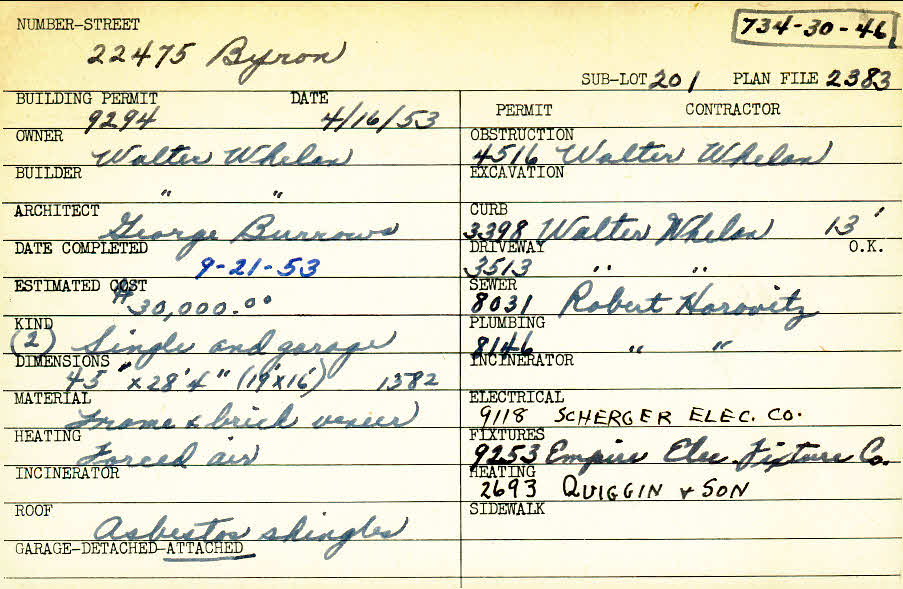 NUMBER-STREET
734-30-46
22475 Byron
SUB-LOT 201 PLAN FILE 2383
BUILDING PERMIT DATE
9294 4/16/53
OWNER
Walter Whelan
BUILDER
" "
ARCHITECT
George Burrows
DATE COMPLETED
9-21-53
ESTIMATED COST
$30,000.00
KIND
(2) Single and garage
DIMENSIONS
45" x 28'4" (19'x16') 1382
MATERIAL
Frame & brick veneer
HEATING
Forced air
INCINERATOR
ROOF
Asbestos shingles
GARAGE-DETACHED-ATTACHED
PERMIT CONTRACTOR
OBSTRUCTION
4516 Walter Whelan
EXCAVATION
CURB
3398 Walter Whelan 13'
DRIVEWAY O.K.
3513 " "
SEWER
8031 Robert Horovitz
PLUMBING
8146 " "
INCINERATOR
ELECTRICAL
9118 SCHERGER ELEC. CO.
FIXTURES
9253 Empire Elec. Fixture Co.
HEATING
2693 QUIGGIN & SON
SIDEWALK